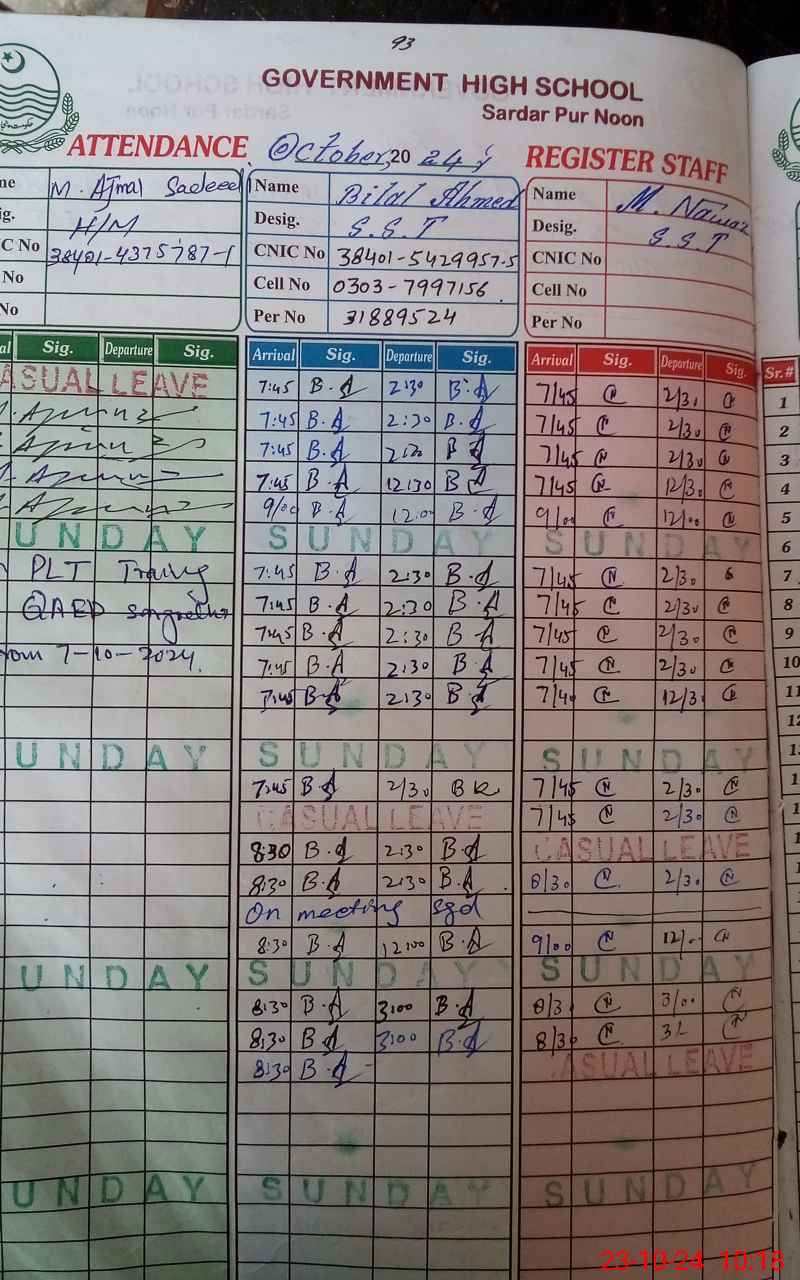 93
GOVERNMENT HIGH SCHOOL
Sardar Pur Noon
ATTENDANCE October, 2024 REGISTER STAFF
me M. Ajmal Saeed Name Bilal Ahmed Name M. Nawaz
ig. H/M Desig. S.S.T Desig. S.S.T
C No 38401-4375787-1 CNIC No 38401-5429957-5 CNIC No
No Cell No 0303-7997156 Cell No
No Per No 31889524 Per No
al Sig. Departure Sig. Arrival Sig. Departure Sig. Arrival Sig. Departure Sig. Sr.#
ASUAL LEAVE 7:45 B.A 2:30 B.A 7/45 2/30 1
7:45 B.A 2:30 B.A 7/45 2/30 2
7:45 B.A 2:30 B.A 7/45 2/30 3
7:45 B.A 12:30 B.A 7/45 12/30 4
9/00 B.A 12:00 B.A 9/00 12/00 5
UNDAY SUNDAY SUNDAY 6
PLT 7:45 B.A 2:30 B.A 7/45 2/30 7
QAED 7:45 B.A 2:30 B.A 7/45 2/30 8
rom 7-10-2024. 7:45 B.A 2:30 B.A 7/45 2/30 9
7:45 B.A 2:30 B.A 7/45 2/30 10
7:45 B.A 2:30 B.A 7/40 12/30 11
12
UNDAY SUNDAY SUNDAY 1
7:45 B.A 2/30 7/45 2/30 1
CASUAL LEAVE 7/45 2/30 1
8:30 B.A 2:30 B.A CASUAL LEAVE
8:30 B.A 2:30 B.A 8/30 2/30
On meeting sgd
8:30 B.A 12:00 B.A 9/00 12/00
UNDAY SUNDAY SUNDAY
8:30 B.A 3:00 B.A 8/3 3/00
8:30 B.A 3:00 B.A 8/30 3
8:30 B.A CASUAL LEAVE
UNDAY SUNDAY SUNDAY
23-10-24 10:18